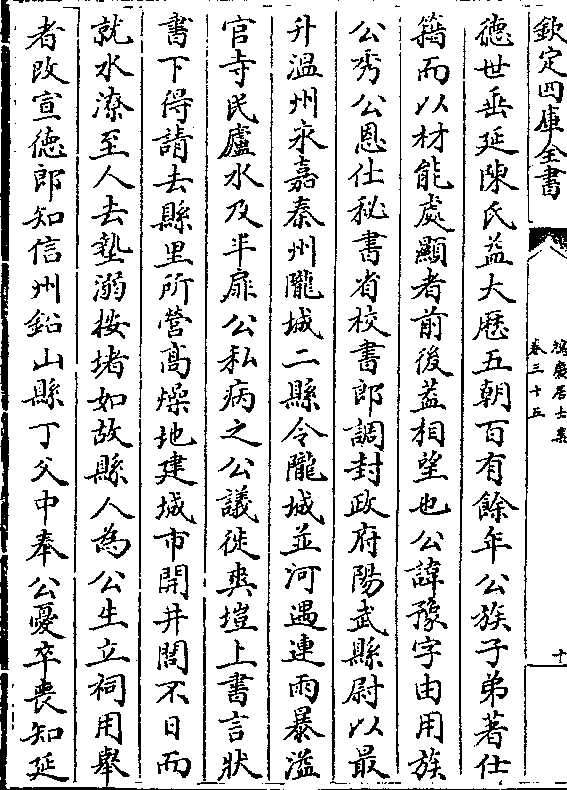 欽定四庫全書
鴻慶居士集
卷三十五
十
德世垂延陳氏益大歷五朝百有餘年公族子弟著仕
籍而以材能處顯者前後蓋相望也公諱豫字由用族
公秀公恩仕秘書省校書郎調封政府陽武縣尉以最
升溫州永嘉秦州隴城二縣令隴城並河遇連雨暴溢
官寺民廬水及半扉公私病之公議徙爽塏上書言狀
書下得請去縣里所營高燥地建城市開井閭不日而
就水潦至人去墊溺按堵如故縣人為公生立祠用舉
者改宣德郎知信州鉛山縣丁父中奉公憂卒喪知延